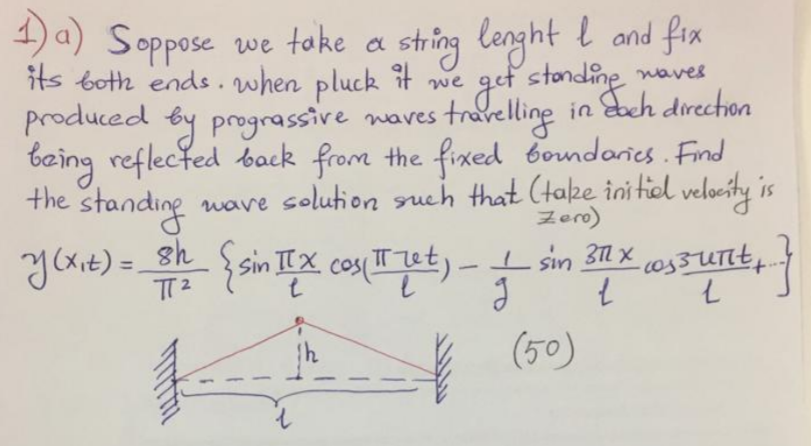 1) a) Soppose we take a string lenght l and fix
its both ends. when pluck it we get standing waves
produced by prograssive waves travelling in each direction
being reflected back from the fixed boundaries. Find
the standing wave solution such that (take initial velocity is
zero)
y(x,t) = 8h/π² {sin πx/l cos(πut/l) - 1/9 sin 3πx/l cos 3uπt/l + ...}
h
(50)
l